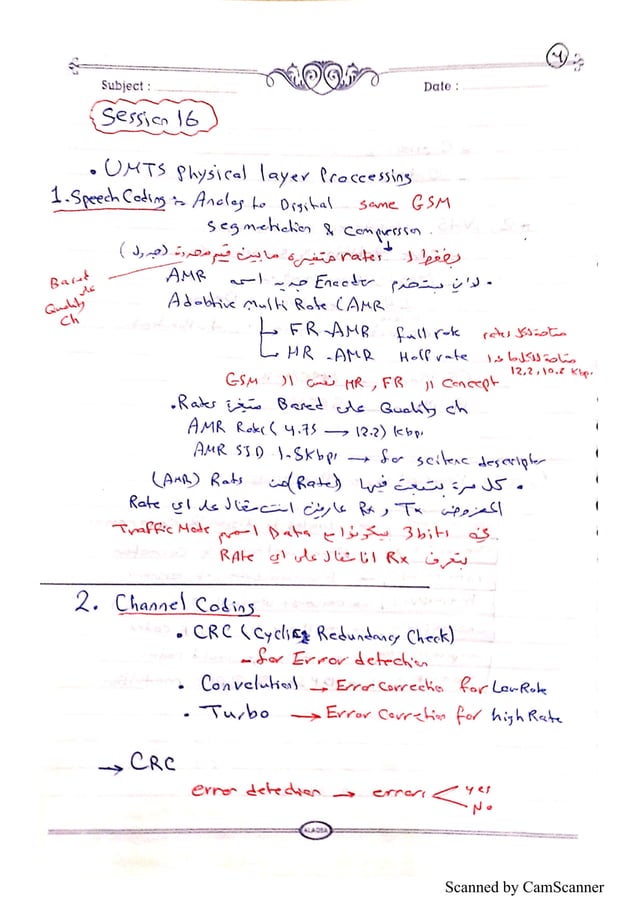 Subject :
Date :
Session 16
• UMTS physical layer Proccessing
1. Speech Coding :- Analog to Digital same GSM
segmetiction & Compression.
بضغط لـ rates متغيرة ما بين قيم محددة (جدول)
Based على Quality Ch
• لان بستخدم Encoder جديد اسمه AMR
Adabtive Multi Rate (AMR
FR-AMR full rate متاحة لكل rates
HR-AMR Half rate متاحة للكل ما عدا 12.2, 10.2 Kbps
concept الـ HR, FR نفس الـ GSM
• Rates متغيرة Based على Quality ch
AMR Rates (4.75 → 12.2) kbps
AMR SID 1.8kbps → for scilenc descripter
• كل مرة بتبعت فيها (Rate) من Rats (AMR)
المفروض Tx و Rx عارفين انت شغال على اي Rate
في 3bits بيكونوا مع Data اسمهم Traffic Mode
بتعرف Rx انا شغال على اي RAte
2. Channel Coding
• CRC (Cyclic Redundancy Check)
- for Error detection
• Convelutinal → Error Correction for Low Rate
• Turbo → Error Correction for high Rate
→ CRC
error detection → errors yes
No
ALAQSA
Scanned by CamScanner